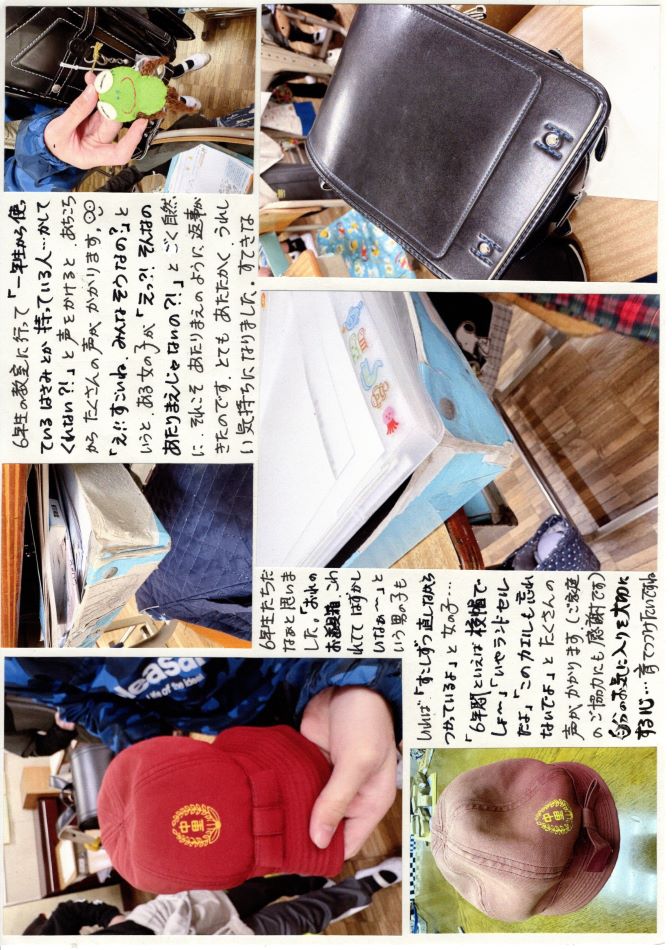 6年生の教室に行って「一年生から使っ
ているはさみとか持っている人…かして
くれない?!」と声をかけると、あちこち
からたくさんの声がかかります。
「え!!すごいね、みんなそうなの?」と
いうと、ある女の子が「えっ?!そんなの
あたりまえじゃないの?!」とごく自然
に、それこそあたりまえのように返事が
きたのです。とてもあたたかく、うれし
い気持ちになりました。すてきな
6年生たちだ
なぁと思いま
した。「おれの
お道具箱、こわ
れててはずかし
いなぁ〜」と
いう男の子も
いれば、「すこしずつ直しながら
つかっているよ」と女の子…
「6年間といえば校帽で
しょ〜」「いやランドセル
だよ」「このカエルも忘れ
ないでよ」とたくさんの
声がかかります。(ご家庭
のご協力にも感謝です)
自分のお気に入りを大切に
する心…育てつづけたいですね